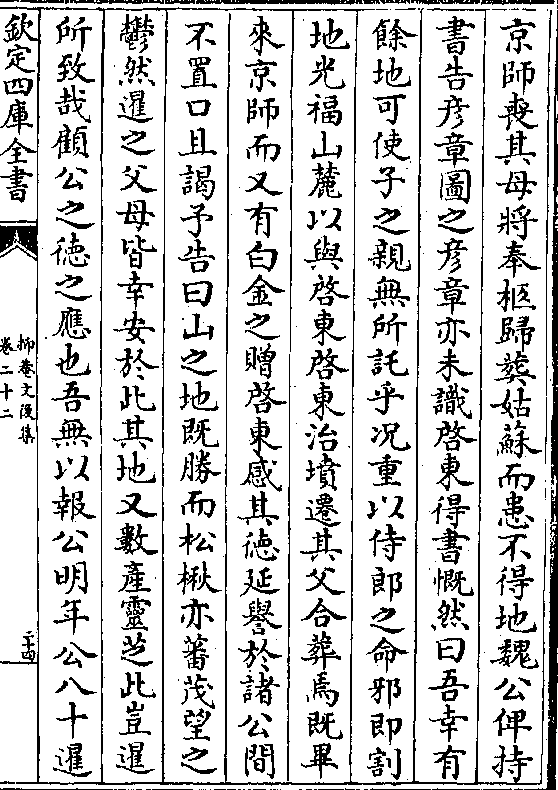 京師喪其母將奉柩歸葬姑蘇而患不得地魏公俾持
書告彦章圖之彦章亦未識啓東得書慨然曰吾幸有
餘地可使子之親無所託乎况重以侍郎之命邪即割
地光福山麓以與啓東啓東治墳遷其父合葬焉既畢
來京師而又有白金之贈啓東感其徳延譽於諸公間
不置口且謁予告曰山之地既勝而松楸亦蕃茂望之
鬱然暹之父母皆幸安於此其地又數產靈芝此豈暹
所致哉顧公之徳之應也吾無以報公明年公八十暹
欽定四庫全書
抑菴文後集
卷二十二
二十四